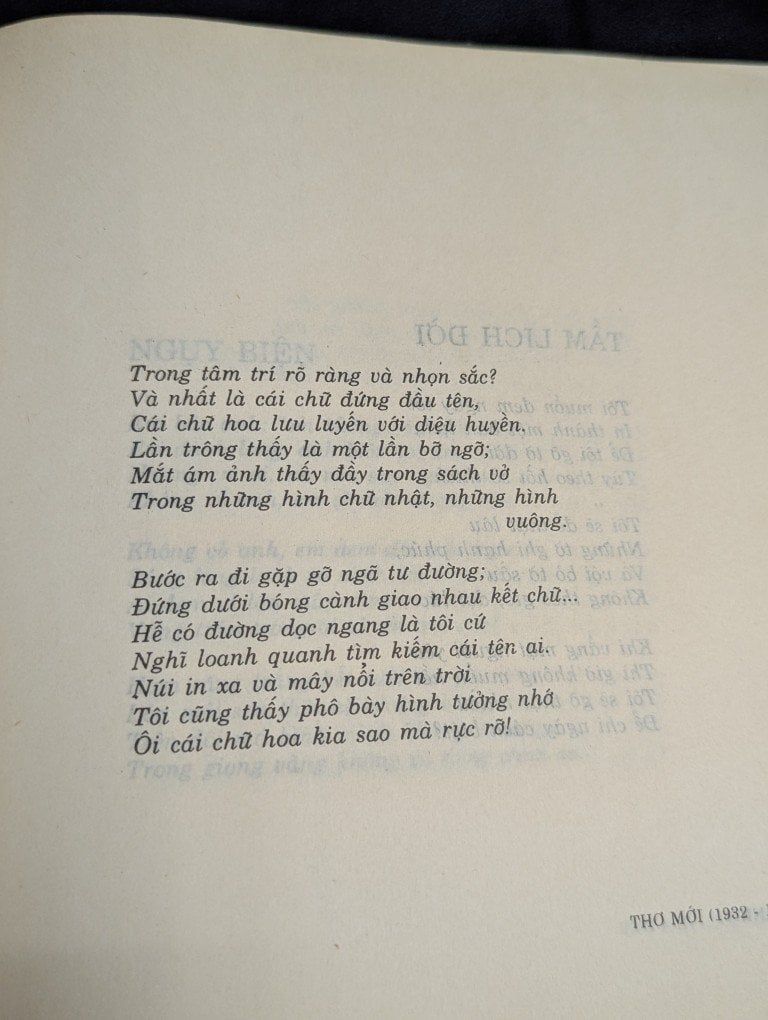 Trong tâm trí rõ ràng và nhọn sắc?
Và nhất là cái chữ đứng đầu tên,
Cái chữ hoa lưu luyến với diệu huyền,
Lần trông thấy là một lần bỡ ngỡ;
Mắt ám ảnh thấy đầy trong sách vở
Trong những hình chữ nhật, những hình
vuông.
Bước ra đi gặp gỡ ngã tư đường;
Đứng dưới bóng cành giao nhau kết chữ...
Hễ có đường dọc ngang là tôi cứ
Nghĩ loanh quanh tìm kiếm cái tên ai.
Núi in xa và mây nổi trên trời
Tôi cũng thấy phô bày hình tưởng nhớ
Ôi cái chữ hoa kia sao mà rực rỡ!
THƠ MỚI (1932 -
NGỤY BIỆN
TẤM LỊCH ĐỜI